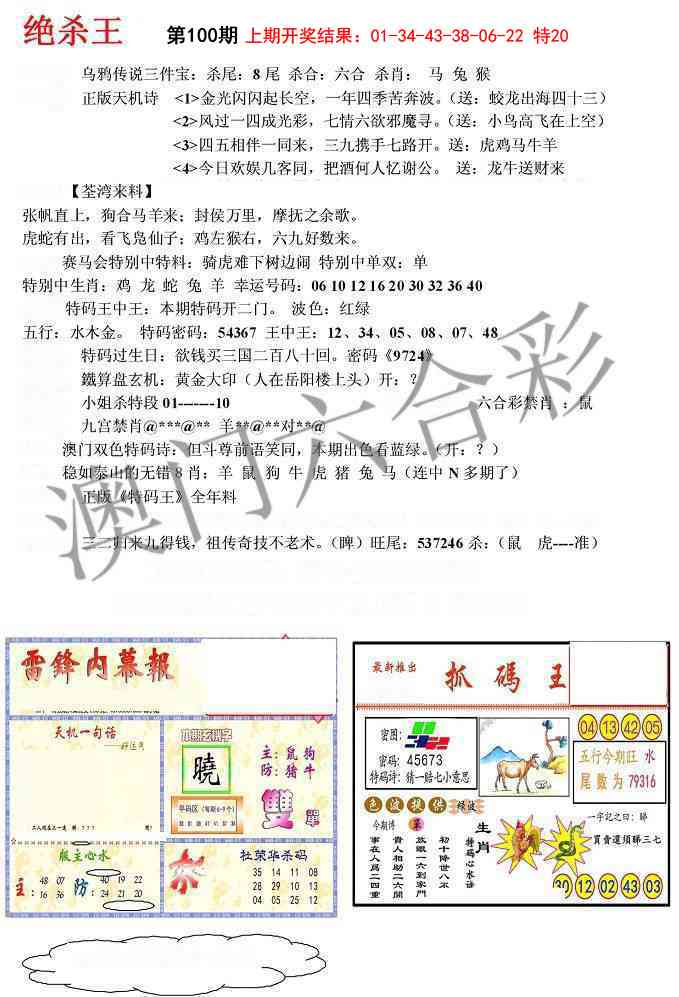 绝杀王 第100期 上期开奖结果：01-34-43-38-06-22 特20
乌鸦传说三件宝：杀尾：8 尾 杀合：六合 杀肖： 马 兔 猴
正版天机诗 <1>金光闪闪起长空，一年四季苦奔波。（送：蛟龙出海四十三）
<2>风过一四成光彩，七情六欲邪魔寻。（送：小鸟高飞在上空）
<3>四五相伴一同来，三九携手七路开。送：虎鸡马牛羊
<4>今日欢娱几客同，把酒何人忆谢公。 送：龙牛送财来
【荃湾来料】
张帆直上，狗合马羊来；封侯万里，摩抚之余歌。
虎蛇有出，看飞凫仙子；鸡左猴右，六九好数来。
赛马会特别中特料：骑虎难下树边闹 特别中单双：单
特别中生肖：鸡 龙 蛇 兔 羊 幸运号码：06 10 12 16 20 30 32 36 40
特码王中王：本期特码开二门。 波色：红绿
五行：水木金。 特码密码：54367 王中王：12、34、05、08、07、48
特码过生日：欲钱买三国二百八十回。密码《9724》
鐵算盘玄机：黄金大印（人在岳阳楼上头）开：？
小姐杀特段 01--------10 六合彩禁肖 ：鼠
九宫禁肖@***@** 羊**@**对**@
澳门双色特码诗：但斗尊前语笑同，本期出色看蓝绿。（开：？）
稳如泰山的无错 8 肖：羊 鼠 狗 牛 虎 猪 兔 马（连中 N 多期了）
正版《特码王》全年料
三二归来九得钱，祖传奇技不老术。（睥）旺尾：537246 杀：（鼠 虎----准）
澳门六合彩
雷鋒内幕報
天机一句话
曉
主：鼠狗
防：猪牛
雙單
版主心水
主： 48 07 16 36
防： 40 19 22 24 21 20
杀
杜荣华杀码
35 14 11 08
28 10 29 13
04 05 25 12
最新推出 抓碼王
密图：
密码：45673
特码诗：猜一赔七小意思
04 13 42 05
五行今期旺 水
尾数为 79316
色波提供
今期博
事在人爲二四重
貴人相助二六開
放眼一六到家門
初十降世八不
特码心水语
生肖
一字记之曰：睇
買賣還須睇三七
30 12 02 43 03